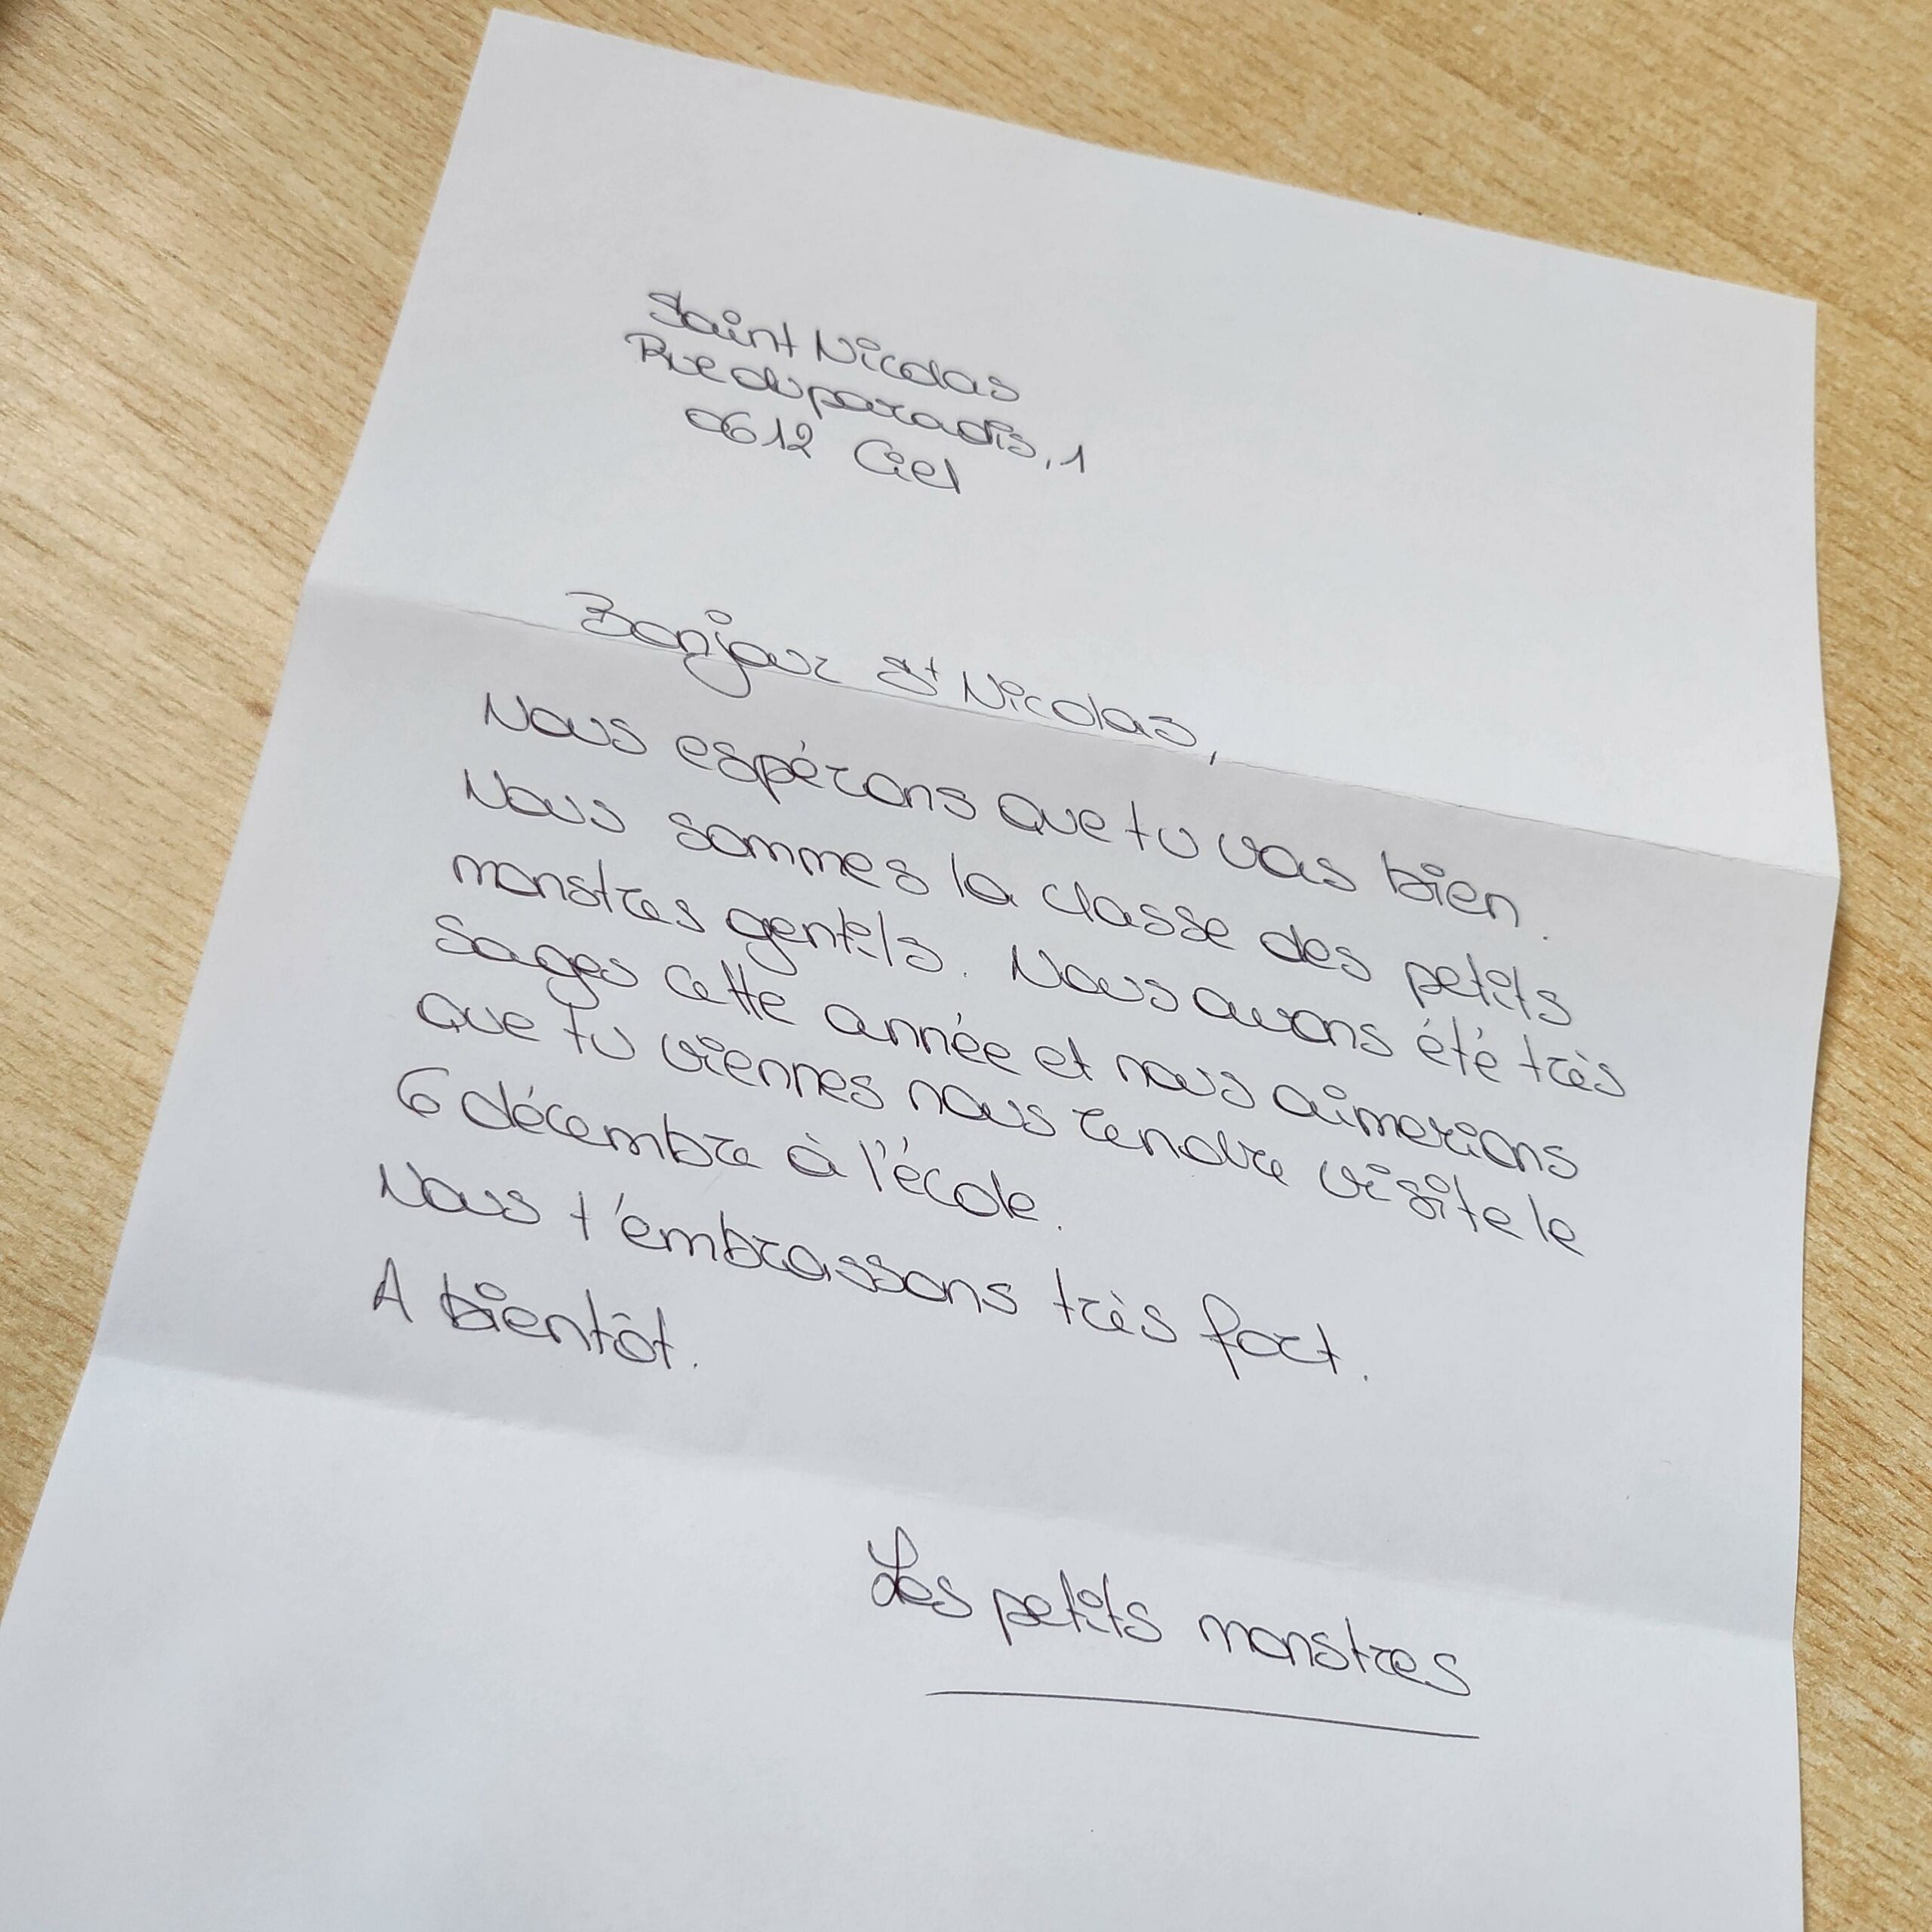 Saint Nicolas
Rue du paradis, 1
0612 Ciel
Bonjour St Nicolas,
Nous espérons que tu vas bien.
Nous sommes la classe des petits
monstres gentils. Nous avons été très
sages cette année et nous aimerions
que tu viennes nous rendre visite le
6 décembre à l'école.
Nous t'embrassons très fort.
A bientôt.
Les petits monstres